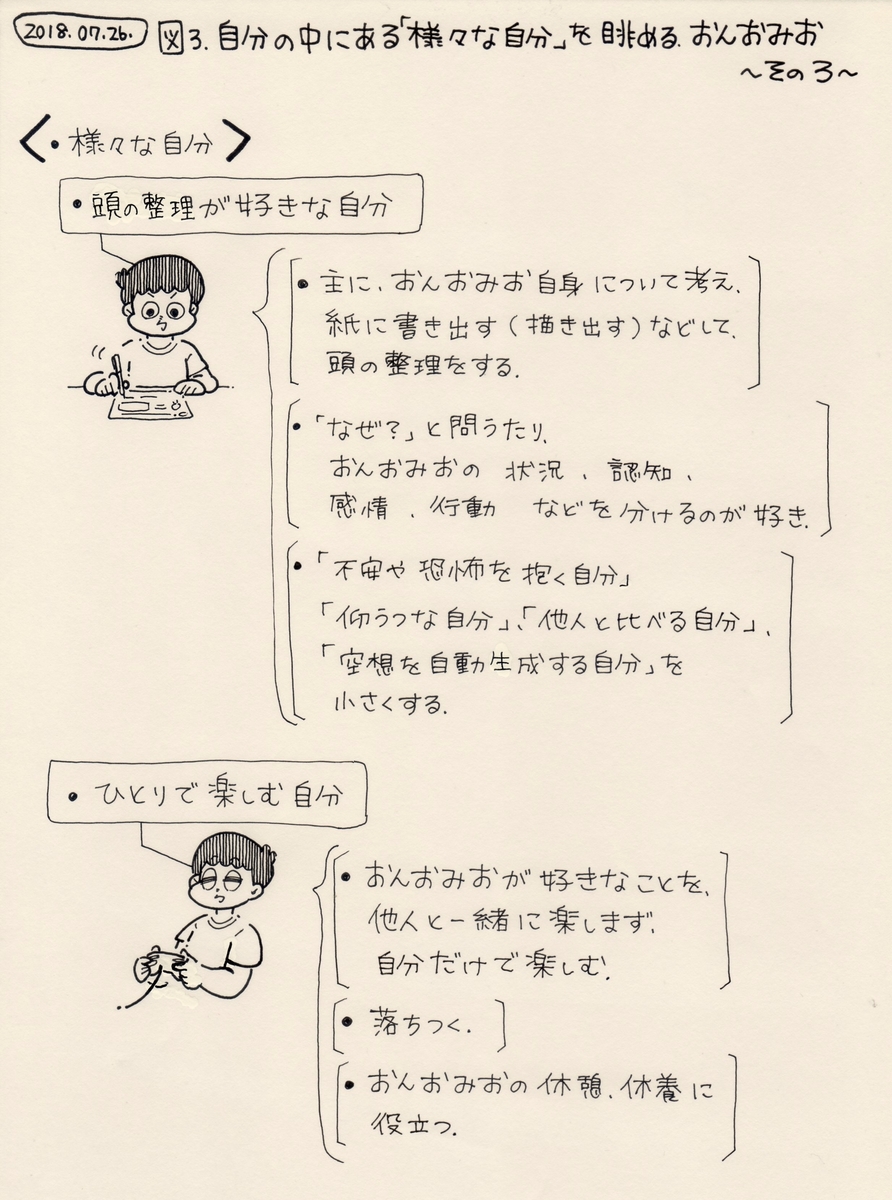 2018.07.26. 図3. 自分の中にある「様々な自分」を眺める おんおみお
〜その3〜
<・様々な自分>
・頭の整理が好きな自分
・主に、おんおみお自身について考え、
紙に書き出す(描き出す)などして、
頭の整理をする。
・「なぜ?」と問うたり、
おんおみおの 状況、認知、
感情、行動 などを分けるのが好き。
・「不安や恐怖を抱く自分」
「抑うつな自分」、「他人と比べる自分」、
「空想を自動生成する自分」を
小さくする。
・ひとりで楽しむ自分
・おんおみおが好きなことを、
他人と一緒に楽しまず、
自分だけで楽しむ。
・落ちつく.
・おんおみおの休憩、休養に
役立つ.